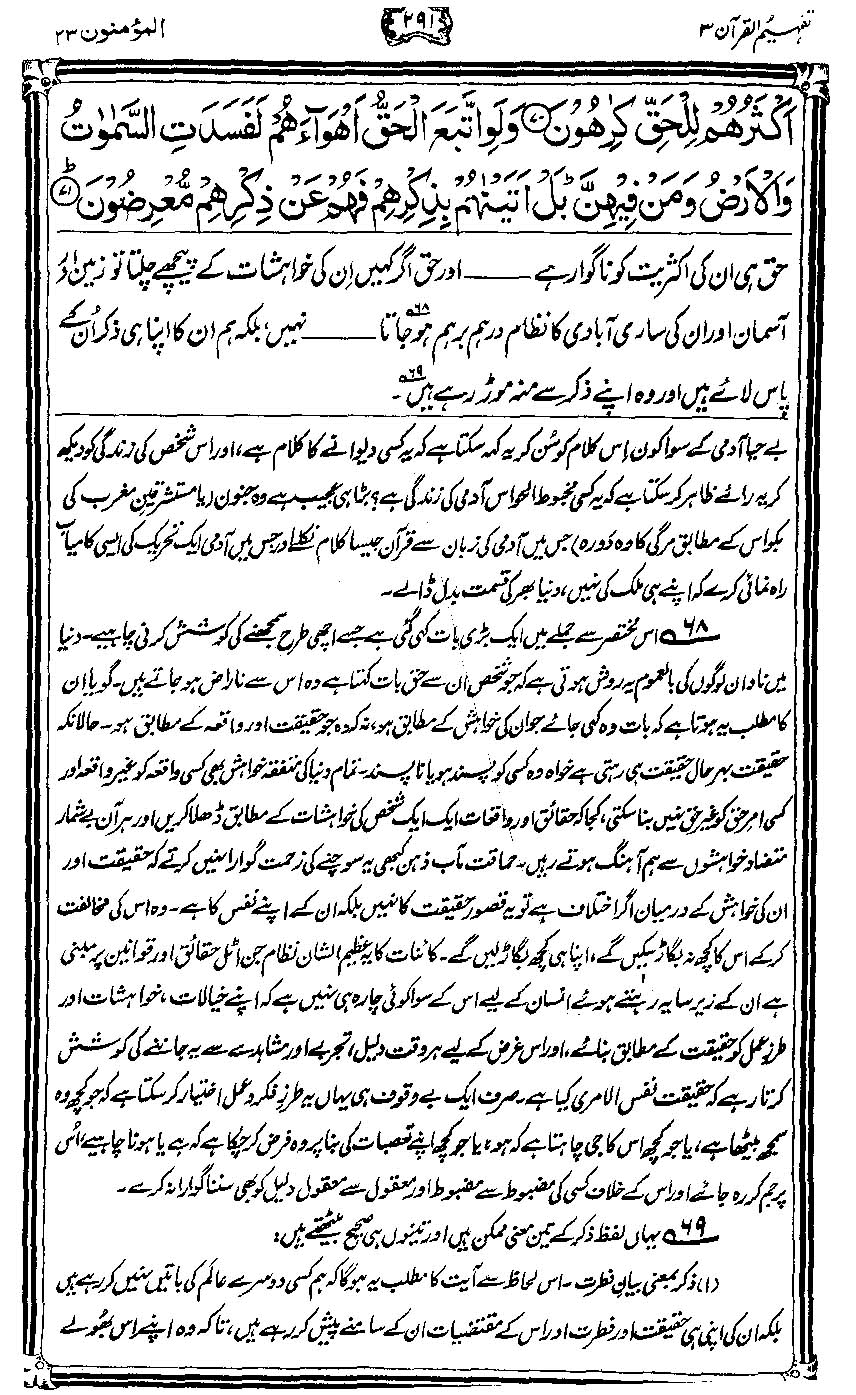 تفہیم القرآن ۳
۲۹۱
المؤمنون ۲۳
اَكْثَرُهُمْ لِلْحَقِّ كٰرِهُوْنَ ۷۰ وَلَوِ اتَّبَعَ الْحَقُّ اَهْوَآءَهُمْ لَفَسَدَتِ السَّمٰوٰتُ
وَالْاَرْضُ وَمَنْ فِيْهِنَّ ؕ بَلْ اَتَيْنٰهُمْ بِذِكْرِهِمْ فَهُمْ عَنْ ذِكْرِهِمْ مُّعْرِضُوْنَ ؕ ۷۱
حق ہی ان کی اکثریت کو ناگوار ہے ——— اور حق اگر کہیں اِن کی خواہشات کے پیچھے چلتا تو زمین اور
آسمان اور ان کی ساری آبادی کا نظام درہم برہم ہو جاتا ۶۸ ——— نہیں، بلکہ ہم ان کا اپنا ہی ذکر اُن کے
پاس لائے ہیں اور وہ اپنے ذکر سے منہ موڑ رہے ہیں ۶۹۔
بے حیا آدمی کے سوا کون اِس کلام کو سُن کر یہ کہہ سکتا ہے کہ یہ کسی دیوانے کا کلام ہے، اور اس شخص کی زندگی کو دیکھ
کر یہ رائے ظاہر کر سکتا ہے کہ یہ کسی مخبوط الحواس آدمی کی زندگی ہے؟ بڑا ہی عجیب ہے وہ جنون (یا مستشرقینِ مغرب کی
بکواس کے مطابق مرگی کا وہ دَورہ) جس میں آدمی کی زبان سے قرآن جیسا کلام نکلے اور جس میں آدمی ایک تحریک کی ایسی کامیاب
راہ نمائی کرے کہ اپنے ہی ملک کی نہیں، دنیا بھر کی قسمت بدل ڈالے۔
۶۸ اس مختصر سے جملے میں ایک بڑی بات کہی گئی ہے جسے اچھی طرح سمجھنے کی کوشش کرنی چاہیے۔ دنیا
میں نادان لوگوں کی بالعموم یہ روش ہوتی ہے کہ جو شخص ان سے حق بات کہتا ہے وہ اس سے ناراض ہو جاتے ہیں۔ گویا اِن
کا مطلب یہ ہوتا ہے کہ بات وہ کہی جائے جو ان کی خواہش کے مطابق ہو، نہ کہ وہ جو حقیقت اور واقعہ کے مطابق ہو۔ حالانکہ
حقیقت بہر حال حقیقت ہی رہتی ہے خواہ وہ کسی کو پسند ہو یا ناپسند۔ تمام دنیا کی متفقہ خواہش بھی کسی واقعہ کو غیر واقعہ اور
کسی امرِ حق کو غیر حق نہیں بنا سکتی، کجا کہ حقائق اور واقعات ایک ایک شخص کی خواہشات کے مطابق ڈھلا کریں اور ہر آن بے شمار
متضاد خواہشوں سے ہم آہنگ ہوتے رہیں۔ حماقت مآب ذہن کبھی یہ سوچنے کی زحمت گوارا نہیں کرتے کہ حقیقت اور
ان کی خواہش کے درمیان اگر اختلاف ہے تو یہ قصور حقیقت کا نہیں بلکہ ان کے اپنے نفس کا ہے۔ وہ اس کی مخالفت
کر کے اس کا کچھ نہ بگاڑ سکیں گے، اپنا ہی کچھ بگاڑ لیں گے۔ کائنات کا یہ عظیم الشان نظام جن اٹل حقائق اور قوانین پر مبنی
ہے ان کے زیر سایہ رہتے ہوئے انسان کے لیے اس کے سوا کوئی چارہ ہی نہیں ہے کہ اپنے خیالات، خواہشات اور
طرزِ عمل کو حقیقت کے مطابق بنائے، اور اس غرض کے لیے ہر وقت دلیل، تجربے اور مشاہدے سے یہ جاننے کی کوشش
کرتا رہے کہ حقیقت نفس الامری کیا ہے۔ صرف ایک بے وقوف ہی یہاں یہ طرزِ فکر و عمل اختیار کر سکتا ہے کہ جو کچھ وہ
سمجھ بیٹھا ہے، یا جو کچھ اس کا جی چاہتا ہے کہ ہو، یا جو کچھ اپنے تعصبات کی بنا پر وہ فرض کر چکا ہے کہ ہے یا ہونا چاہیے، اُس
پر جم کر رہ جائے اور اس کے خلاف کسی کی مضبوط سے مضبوط اور معقول سے معقول دلیل کو بھی سننا گوارا نہ کرے۔
۶۹ یہاں لفظ ذکر کے تین معنی ممکن ہیں اور تینوں ہی صحیح بیٹھتے ہیں:
(۱) ذکر بمعنی بیانِ فطرت۔ اس لحاظ سے آیت کا مطلب یہ ہوگا کہ ہم کسی دوسرے عالم کی باتیں نہیں کر رہے ہیں
بلکہ ان کی اپنی ہی حقیقت اور فطرت اور اس کے مقتضیات ان کے سامنے پیش کر رہے ہیں، تاکہ وہ اپنے اس بھولے